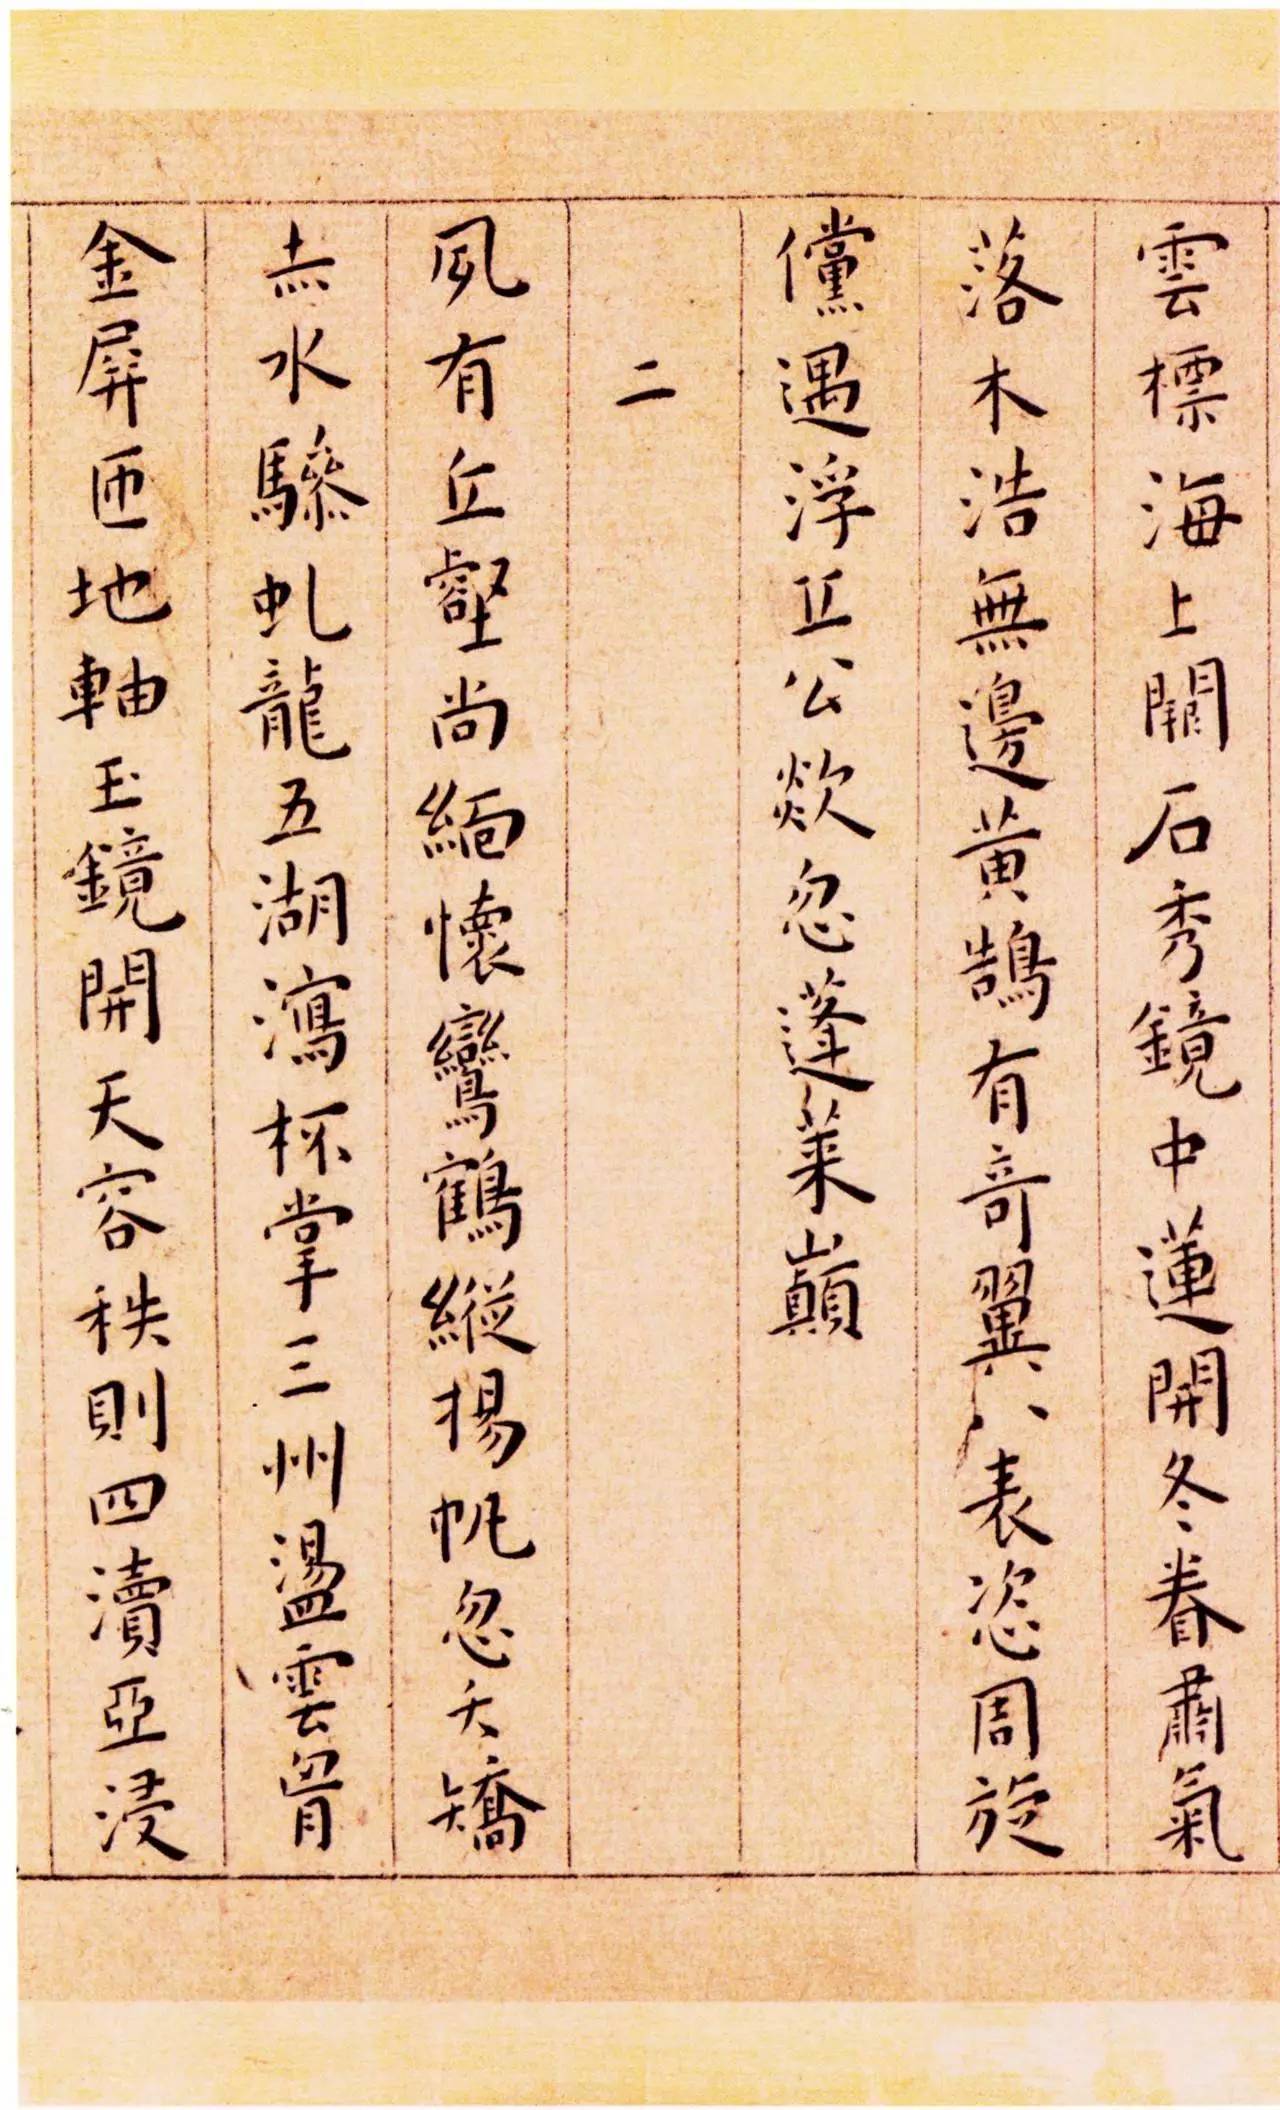 雲標海上闊石秀鏡中蓮開冬眷肅氣
落木浩無邊黃鵠有奇翼八表恣周旋
儻遇浮丘公歘忽蓬萊巔
二
夙有丘壑尚緬懷鸞鶴縱揚帆忽夭矯
赤水驂虬龍五湖瀉杯掌三州盪雲胷
金屏匝地軸玉鏡開天容秩則四瀆亞浸